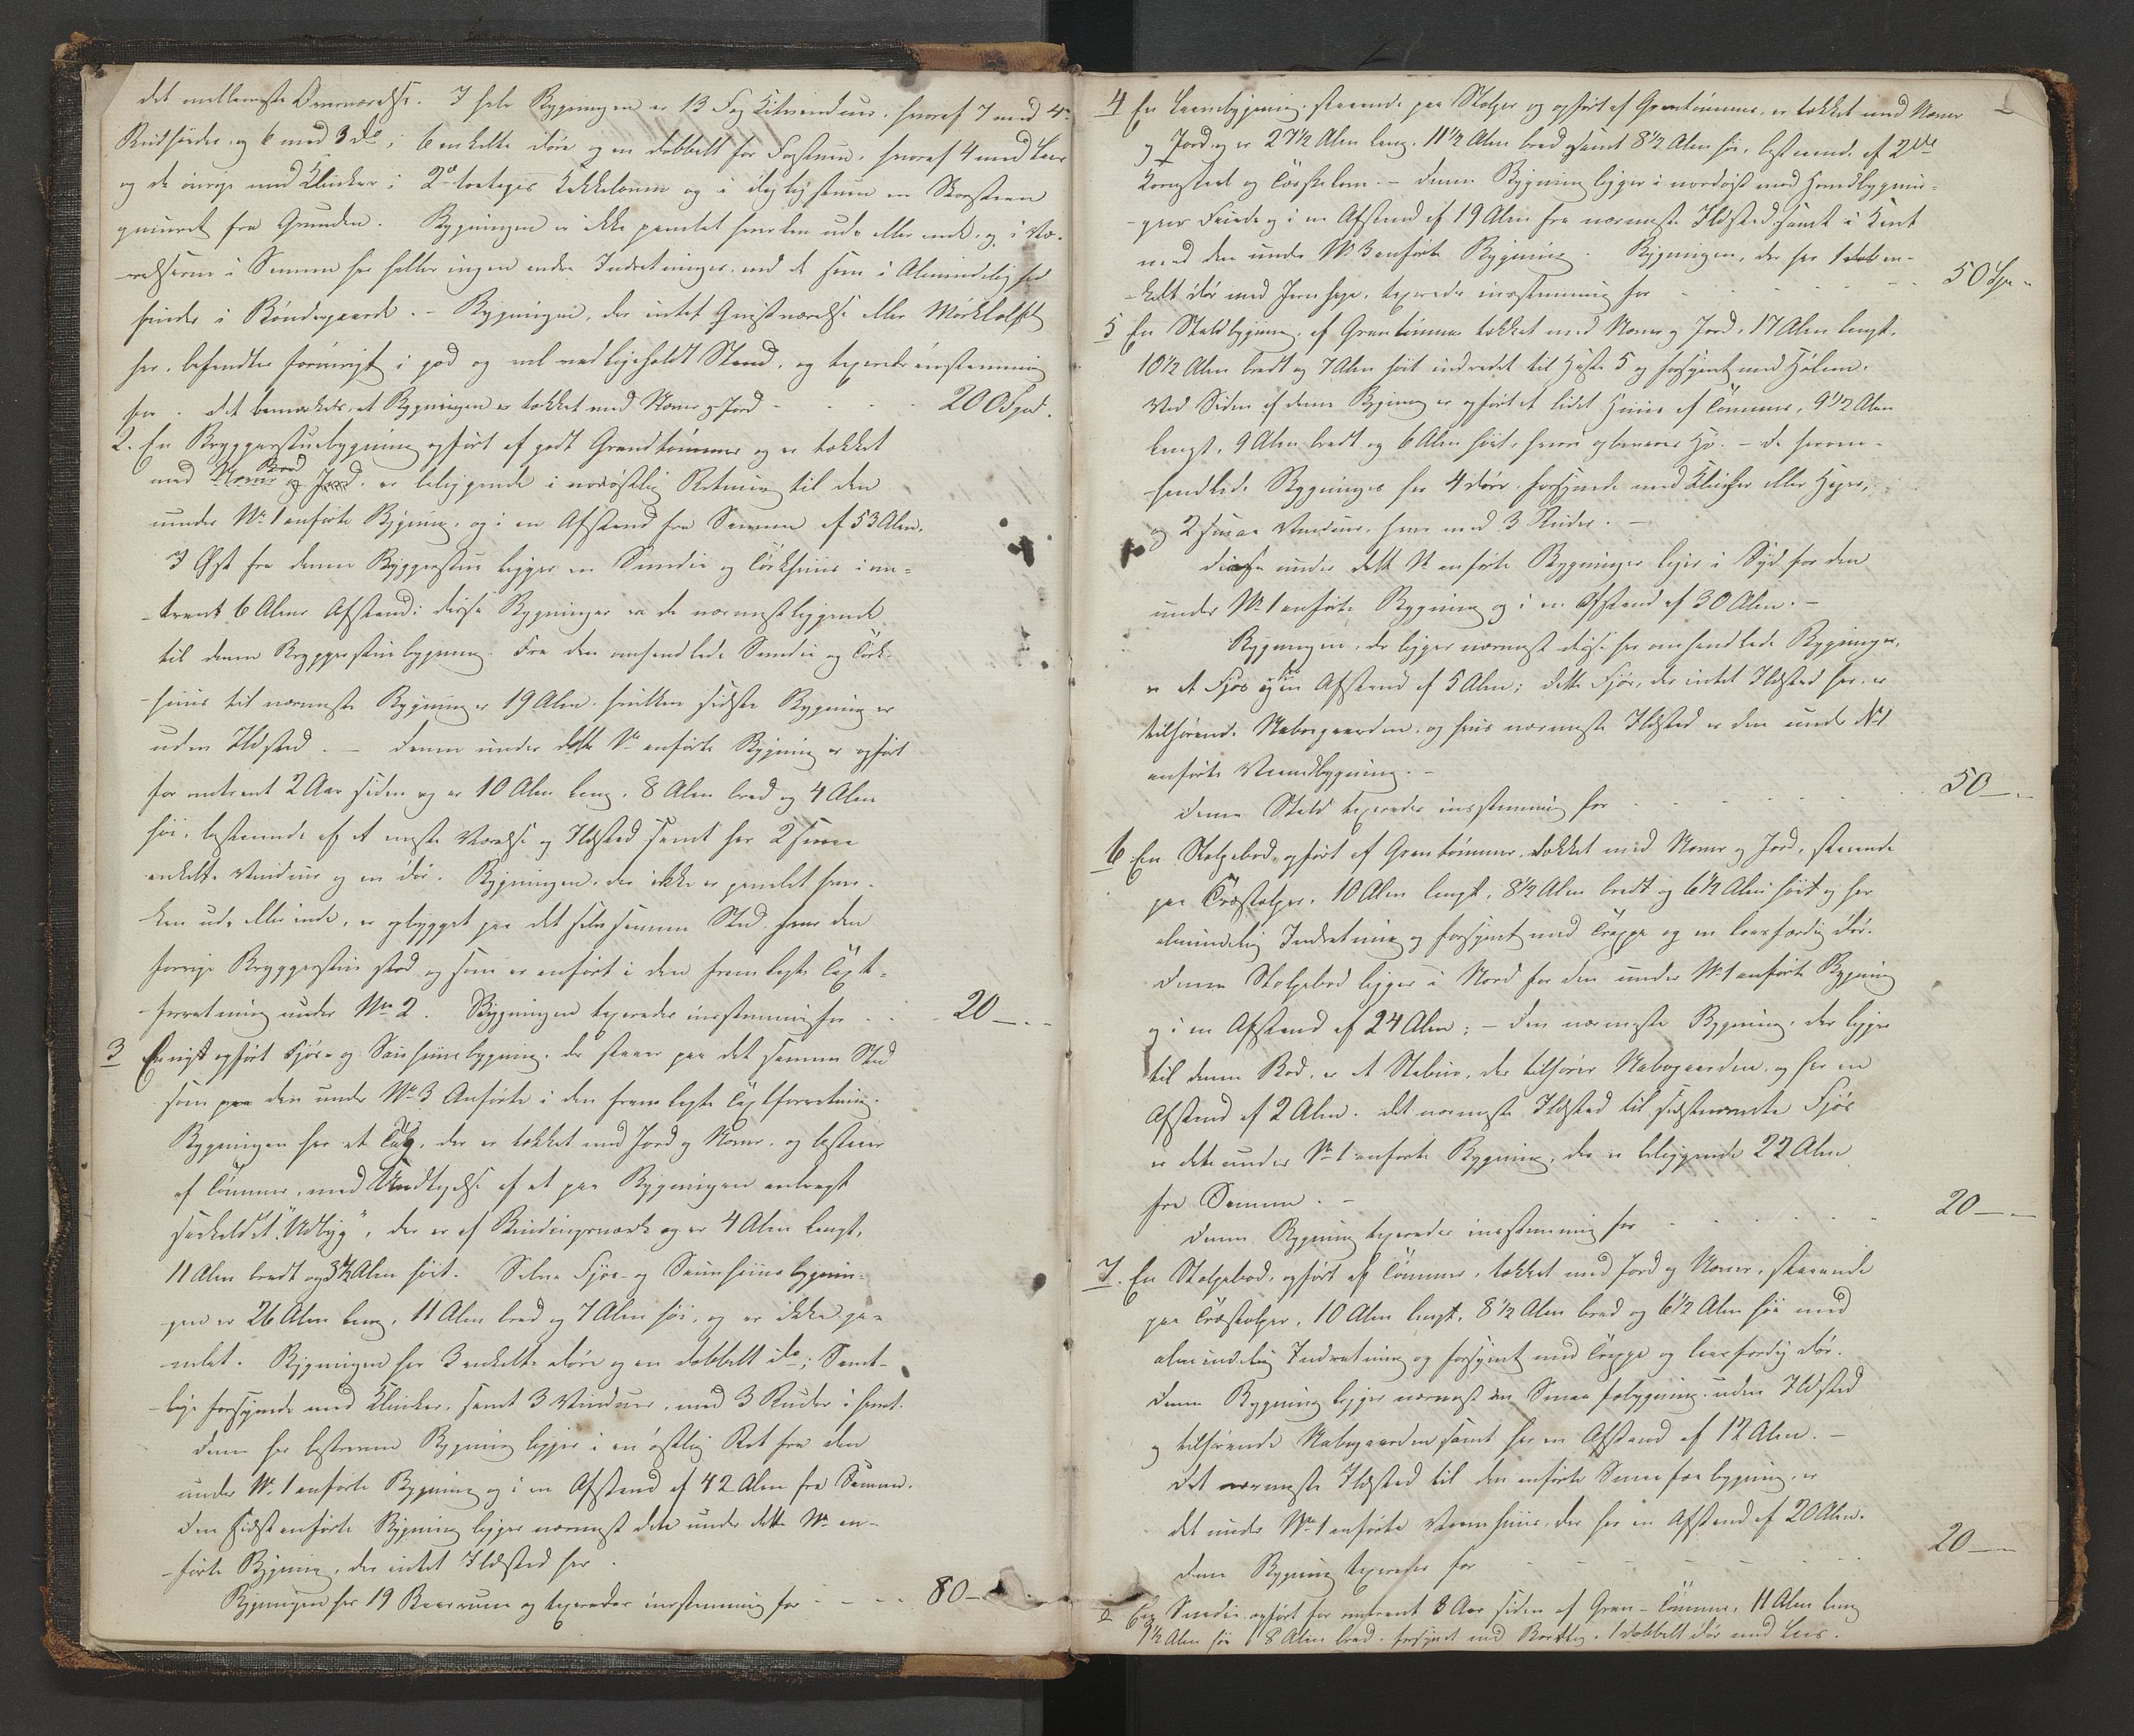 det mellemste Værværelse. I hele Bygningen er 13 Fag Kitvinduer, hvoraf 7 med 4
Rudshøider og 6 med 3 do; 6 enkelte Døre og en dobbelt for Forstuen, hvoraf 4 med Laas
og de øvrige med Klinker; 2de toetages Kakkelovne og i Dagligstuen en Skorsteen
gruuret fra Grunden. Bygningen er ikke panelet hverken ude eller inde, og i Væ-
relserne i Samme har heller ingen andre Indretninger end de som i Almindelighed
findes i Bøndergaarde. – Bygningen, der intet Qvistværelse eller Mørkloft
har, befindtes forøvrigt i god og vel vedligeholdt Stand, og taxeredes eenstemmig
for. Det bemærkedes, at Bygningen er tækket med Næver og Jord - - - 200 Spd.
2. En Bryggerstuebygning opført af godt Grandtømmer og er tækket
med Bord er beliggende i nordøstlig Retning til den
under No 1 anførte Bygning, og i en Afstand fra Samme af 53 Alen.
I Øst fra denne Bryggerstue ligger en Smedie og Tørkehuus i om-
trent 6 Alens Afstand; disse Bygninger er de nærmestliggende
til denne Bryggerstuebygning. Fra den omhandlede Smedie og Tørk-
huus til nærmeste Bygning er 19 Alen, hvilken sidste Bygning er
uden Ildsted. – Denne under dette No anførte Bygning er opført
for omtrent 2 Aar siden og er 10 Alen lang, 8 Alen bred og 4 Alen
høi, bestaaende af et eneste Værelse og Ildsted samt har 2 smaa
enkelte Vinduer og en Dør. Bygningen, der ikke er panelet hver-
ken ude eller inde, er opbygget paa det selvsamme Sted, hvor den
forrige Bryggerstue stod og som er anført i den fremlagte Taxt-
forretning under No 2. Bygningen taxeredes eenstemmig for - - 20 – „ –
3 En nyt opført Fjøs- og Sauehuusbygning, der staaer paa det samme Sted
som den under No 3 Anførte i den fremlagte Taxtforretning.
Bygningen har et Tag, der er tækket med Jord og Næver, og bestaaer
af Tømmer, med Undtagelse af et paa Bygningen anbragt
saakaldet "Udbyg", der er af Bindingsværk og er 4 Alen langt,
11 Alen bredt og 3½ Alen høit. Selve Fjøs- og Sauehuusbygnin-
gen er 26 Alen lang, 11 Alen bred og 7 Alen høi, og er ikke pa-
nelet. Bygningen har 3 enkelte Døre og en dobbelt do; Samt-
lige forsynede med Klinker, samt 3 Vinduer, med 3 Ruder i hvert.
Denne her beskrevne Bygning ligger i en østlig Ret fra den
under No 1 anførte Bygning og i en Afstand af 42 Alen fra Samme.
Den sidst anførte Bygning ligger nærmest den under dette No an-
førte Bygning, der intet Ildsted har.
Bygningen har 19 Baasrum og taxeredes eenstemmig for - - - 80 –
4 En Laanebygning, staaende paa Stolper og opført af Grantømmer, er tækket med Næver
og Jord, og er 27½ Alen lang, 11½ Alen bred samt 8½ Alen høi, bestaaende af 2de
Kornstaal og Tærskelaan. – Denne Bygning ligger i nordøst med
og i en Afstand af 19 Alen fra nærmeste Ildsted samt i Kant
med den under No 3 anførte Bygning. Bygningen, der har 1 en-
kelt Dør med Jern Hage, taxeredes eenstemmig for - - - 50 Spd „
5 En Staldbygning, af Grantømmer tækket med Næver og Jord, 17 Alen langt,
10½ Alen bredt og 7 Alen høit indredet til Heste 5 og forsynet med Hølem.
Ved Siden af denne Bygning er opført et lidet Huus af Tømmer, 9½ Alen
langt, 9 Alen bredt og 6 Alen høit, hvori opbevares Hø. – De herom-
handlede Bygninger har 4 Døre forsynede med Klinker eller Hager,
og 2 smaa Vinduer, hver med 3 Ruder. –
Disse under dette No anførte Bygninger ligger i Syd for den
under No 1 anførte Bygning og i en Afstand af 30 Alen. –
Bygningen, der ligger nærmest disse her omhandlede Bygninger,
er et Fjøs og i en Afstand af 5 Alen; dette Fjøs, der intet Ildsted har, er
tilhørende Nabogaarden, og hvis nærmeste Ildsted er den under No 1
anførte Vaandbygning. –
Denne Stald taxeredes eenstemmig for - - - 50 – „ –
6 En Stolpebod, opført af Grantømmer, tækket med Næver og Jord, staaende
paa Træstolper, 10 Alen langt, 8½ Alen bredt og 6½ Alen høit og har
almindelig Indretning og forsynet med Trappe og en laasfærdig Dør.
Denne Stolpebod ligger i Nord for den under No 1 anførte Bygning
og i en Afstand af 24 Alen; – den nærmeste Bygning, der ligger
til denne Bod, er et Stabur, der tilhører Nabogaarden, og har en
Afstand af 2 Alen. Det nærmeste Ildsted til sidstnævnte Fjøs
er den under No 1 anførte Bygning, der er beliggende 22 Alen
fra Samme. –
Denne Bygning taxeredes eenstemmig for - - - 20 – „ –
7. En Stolpebod, opført af Tømmer, tækket med Jord og Næver, staaende
paa Træstolper, 10 Alen langt, 8½ Alen bred og 6½ Alen høi med
almindelig Indretning og forsynet med Trappe og laasfærdig Dør.
Denne Bygning ligger nærmest en Smaafæbygning uden Ildsted
og tilhørende Nabogaarden samt har en Afstand af 12 Alen. –
Det nærmeste Ildsted til den anførte Smaafæbygning er
det under No 1 anførte Vaanhuus, der har en Afstand af 20 Alen.
Denne Bygning taxeredes for - - - 20 – „ –
8 En Smedie, opført for omtrent 3 Aar siden af Gran-Tømmer, 11 Alen lang
9½ Alen høi 8 Alen bred, forsynet med Bordtag, 1 dobbelt Dør med Laas.